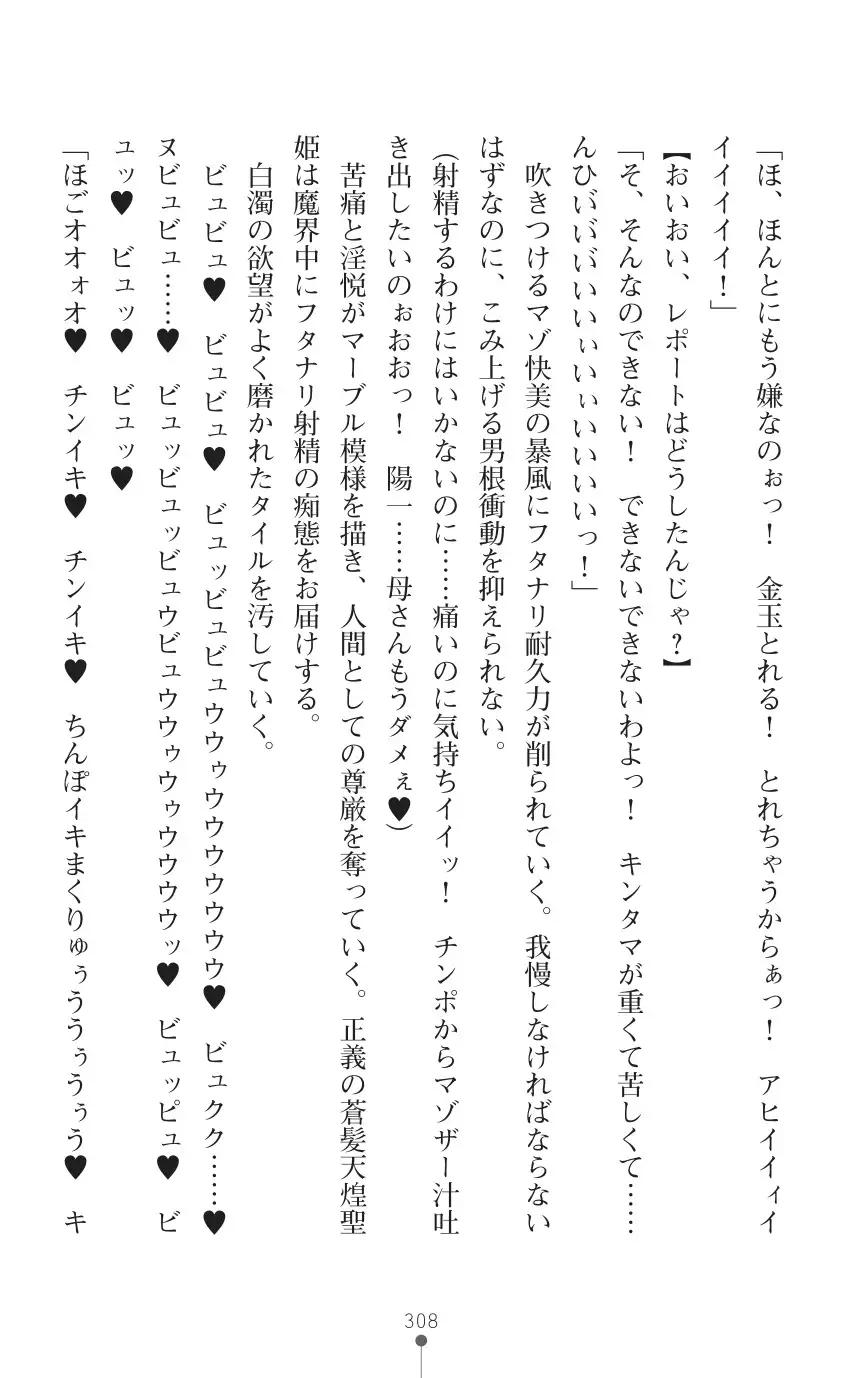 「ほ、ほんとにもう嫌なのぉっ！　金玉とれる！　とれちゃうからぁっ！　アヒイイィイ
イイイイイ！」
【おいおい、レポートはどうしたんじゃ？】
「そ、そんなのできない！　できないできないわよっ！　キンタマが重くて苦しくて……
んひぃぃぃいいぃいぃいいいいっ！」
　吹きつけるマゾ快美の暴風にフタナリ耐久力が削られていく。我慢しなければならない
はずなのに、こみ上げる男根衝動を抑えられない。
（射精するわけにはいかないのに……痛いのに気持ちイイッ！　チンポからマゾザー汁吐
き出したいのぉおおっ！　陽一……母さんもうダメぇ♥）
　苦痛と淫悦がマーブル模様を描き、人間としての尊厳を奪っていく。正義の蒼髪天煌聖
姫は魔界中にフタナリ射精の痴態をお届けする。
　白濁の欲望がよく磨かれたタイルを汚していく。
　ビュビュ♥　ビュビュ♥　ビュッビュビュウウゥウウウウウウウウ♥　ビュクク……♥
ヌビュビュ……♥　ビュッビュッビュウビュウウゥウゥウウウウッ♥　ビュッピュ♥　ビ
ュッ♥　ビュッ♥　ビュッ♥
「ほごオオォオ♥　チンイキ♥　チンイキ♥　ちんぽイキまくりゅぅううぅうぅう♥　キ
308